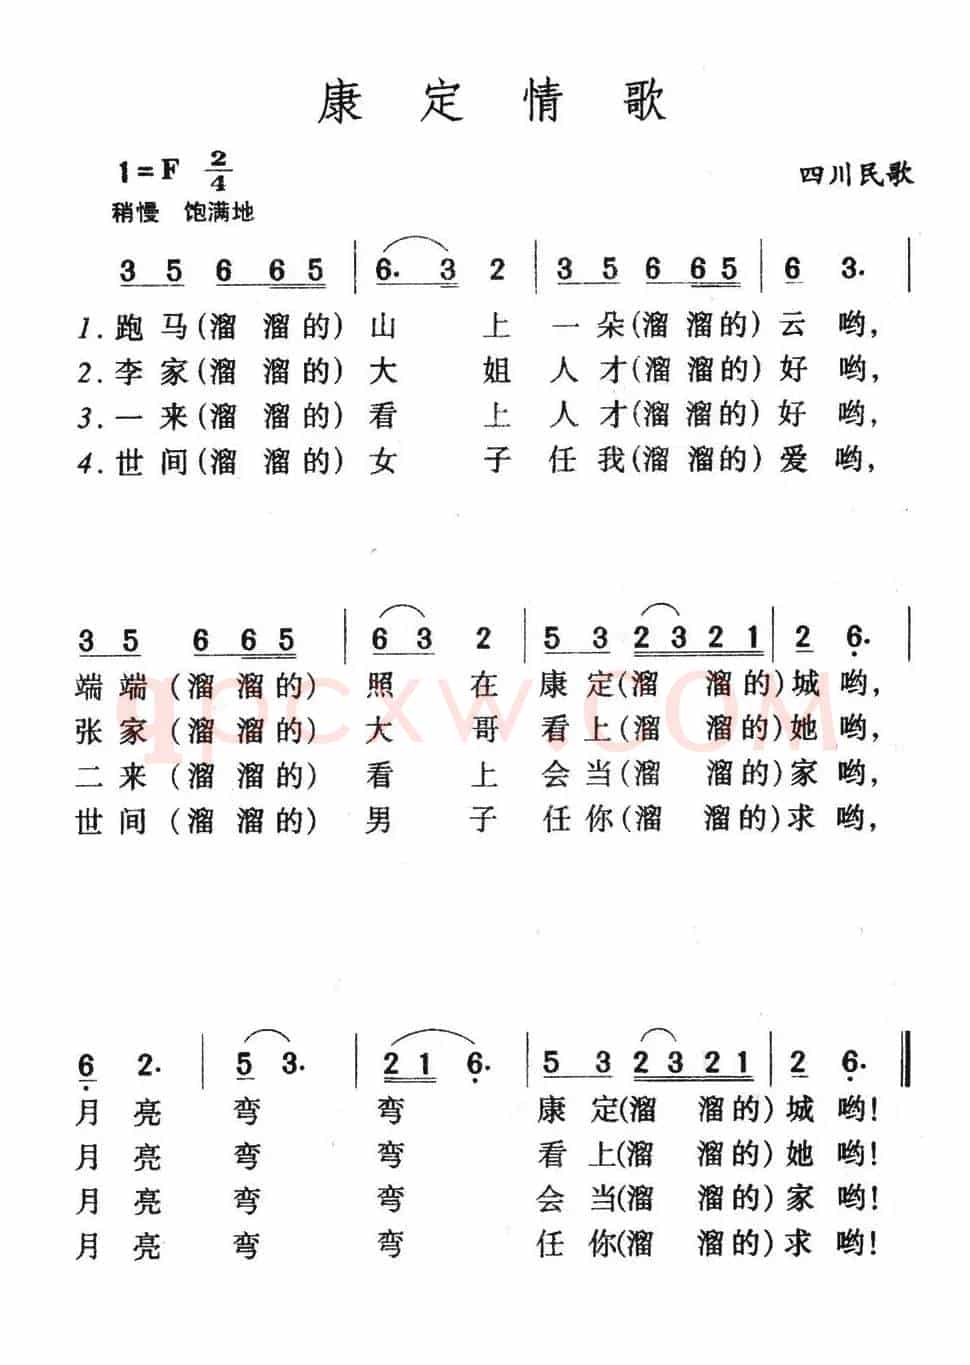 康定情歌
1=F 2/4
四川民歌
稍慢 饱满地
3 5 6 6 5 | 6. 3 2 | 3 5 6 6 5 | 6 3. |
1.跑马(溜溜的)山上一朵(溜溜的)云哟,
2.李家(溜溜的)大姐人才(溜溜的)好哟,
3.一来(溜溜的)看上人才(溜溜的)好哟,
4.世间(溜溜的)女子任我(溜溜的)爱哟,
3 5 6 6 5 | 6 3 2 | 5 3 2 3 2 1 | 2 6. |
端端(溜溜的)照在康定(溜溜的)城哟,
张家(溜溜的)大哥看上(溜溜的)她哟,
二来(溜溜的)看上会当(溜溜的)家哟,
世间(溜溜的)男子任你(溜溜的)求哟,
qpcxw.com
6 2. | 5 3. | 2 1 6. | 5 3 2 3 2 1 | 2 6. ‖
月亮弯弯康定(溜溜的)城哟!
月亮弯弯看上(溜溜的)她哟!
月亮弯弯会当(溜溜的)家哟!
月亮弯弯任你(溜溜的)求哟!